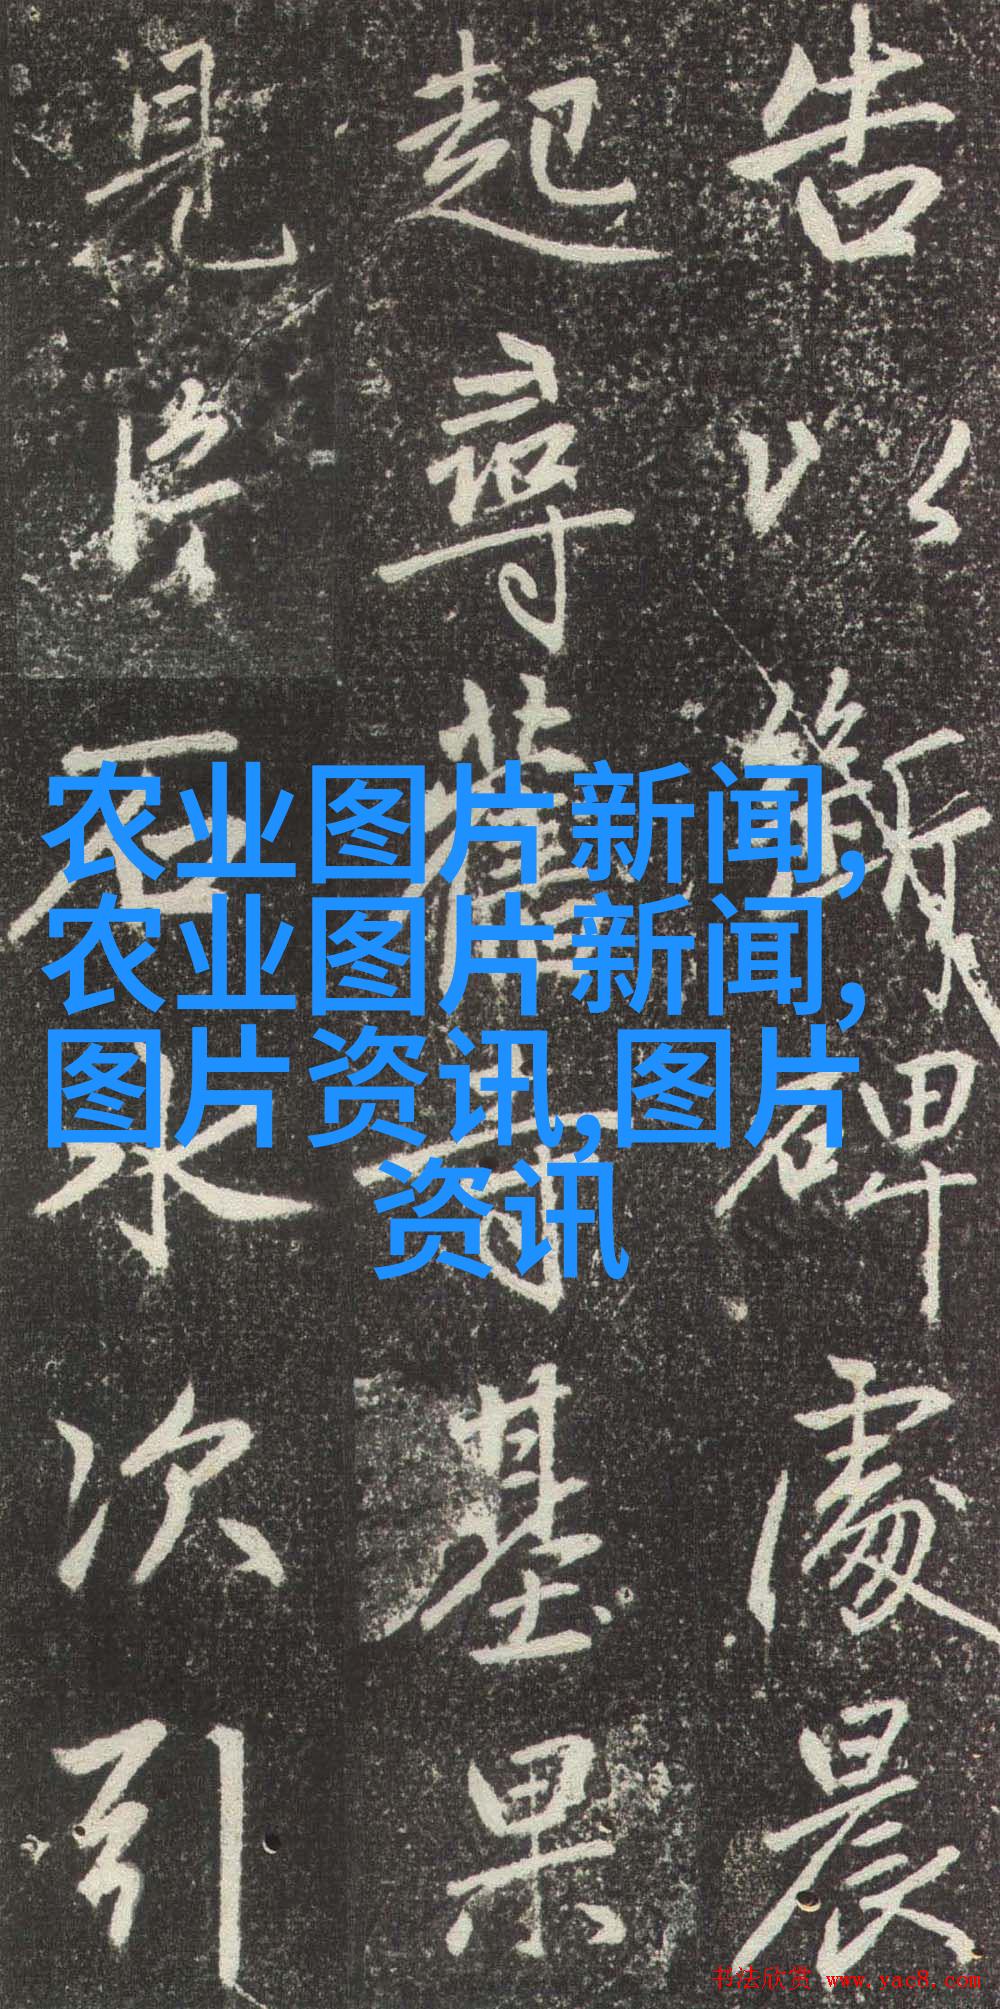 告以碑處晨
起尋舊寺基果
見片石水次引
农业图片新闻,
农业图片新闻,
图片资讯,图片
资讯
书法欣赏 www.yac8.com